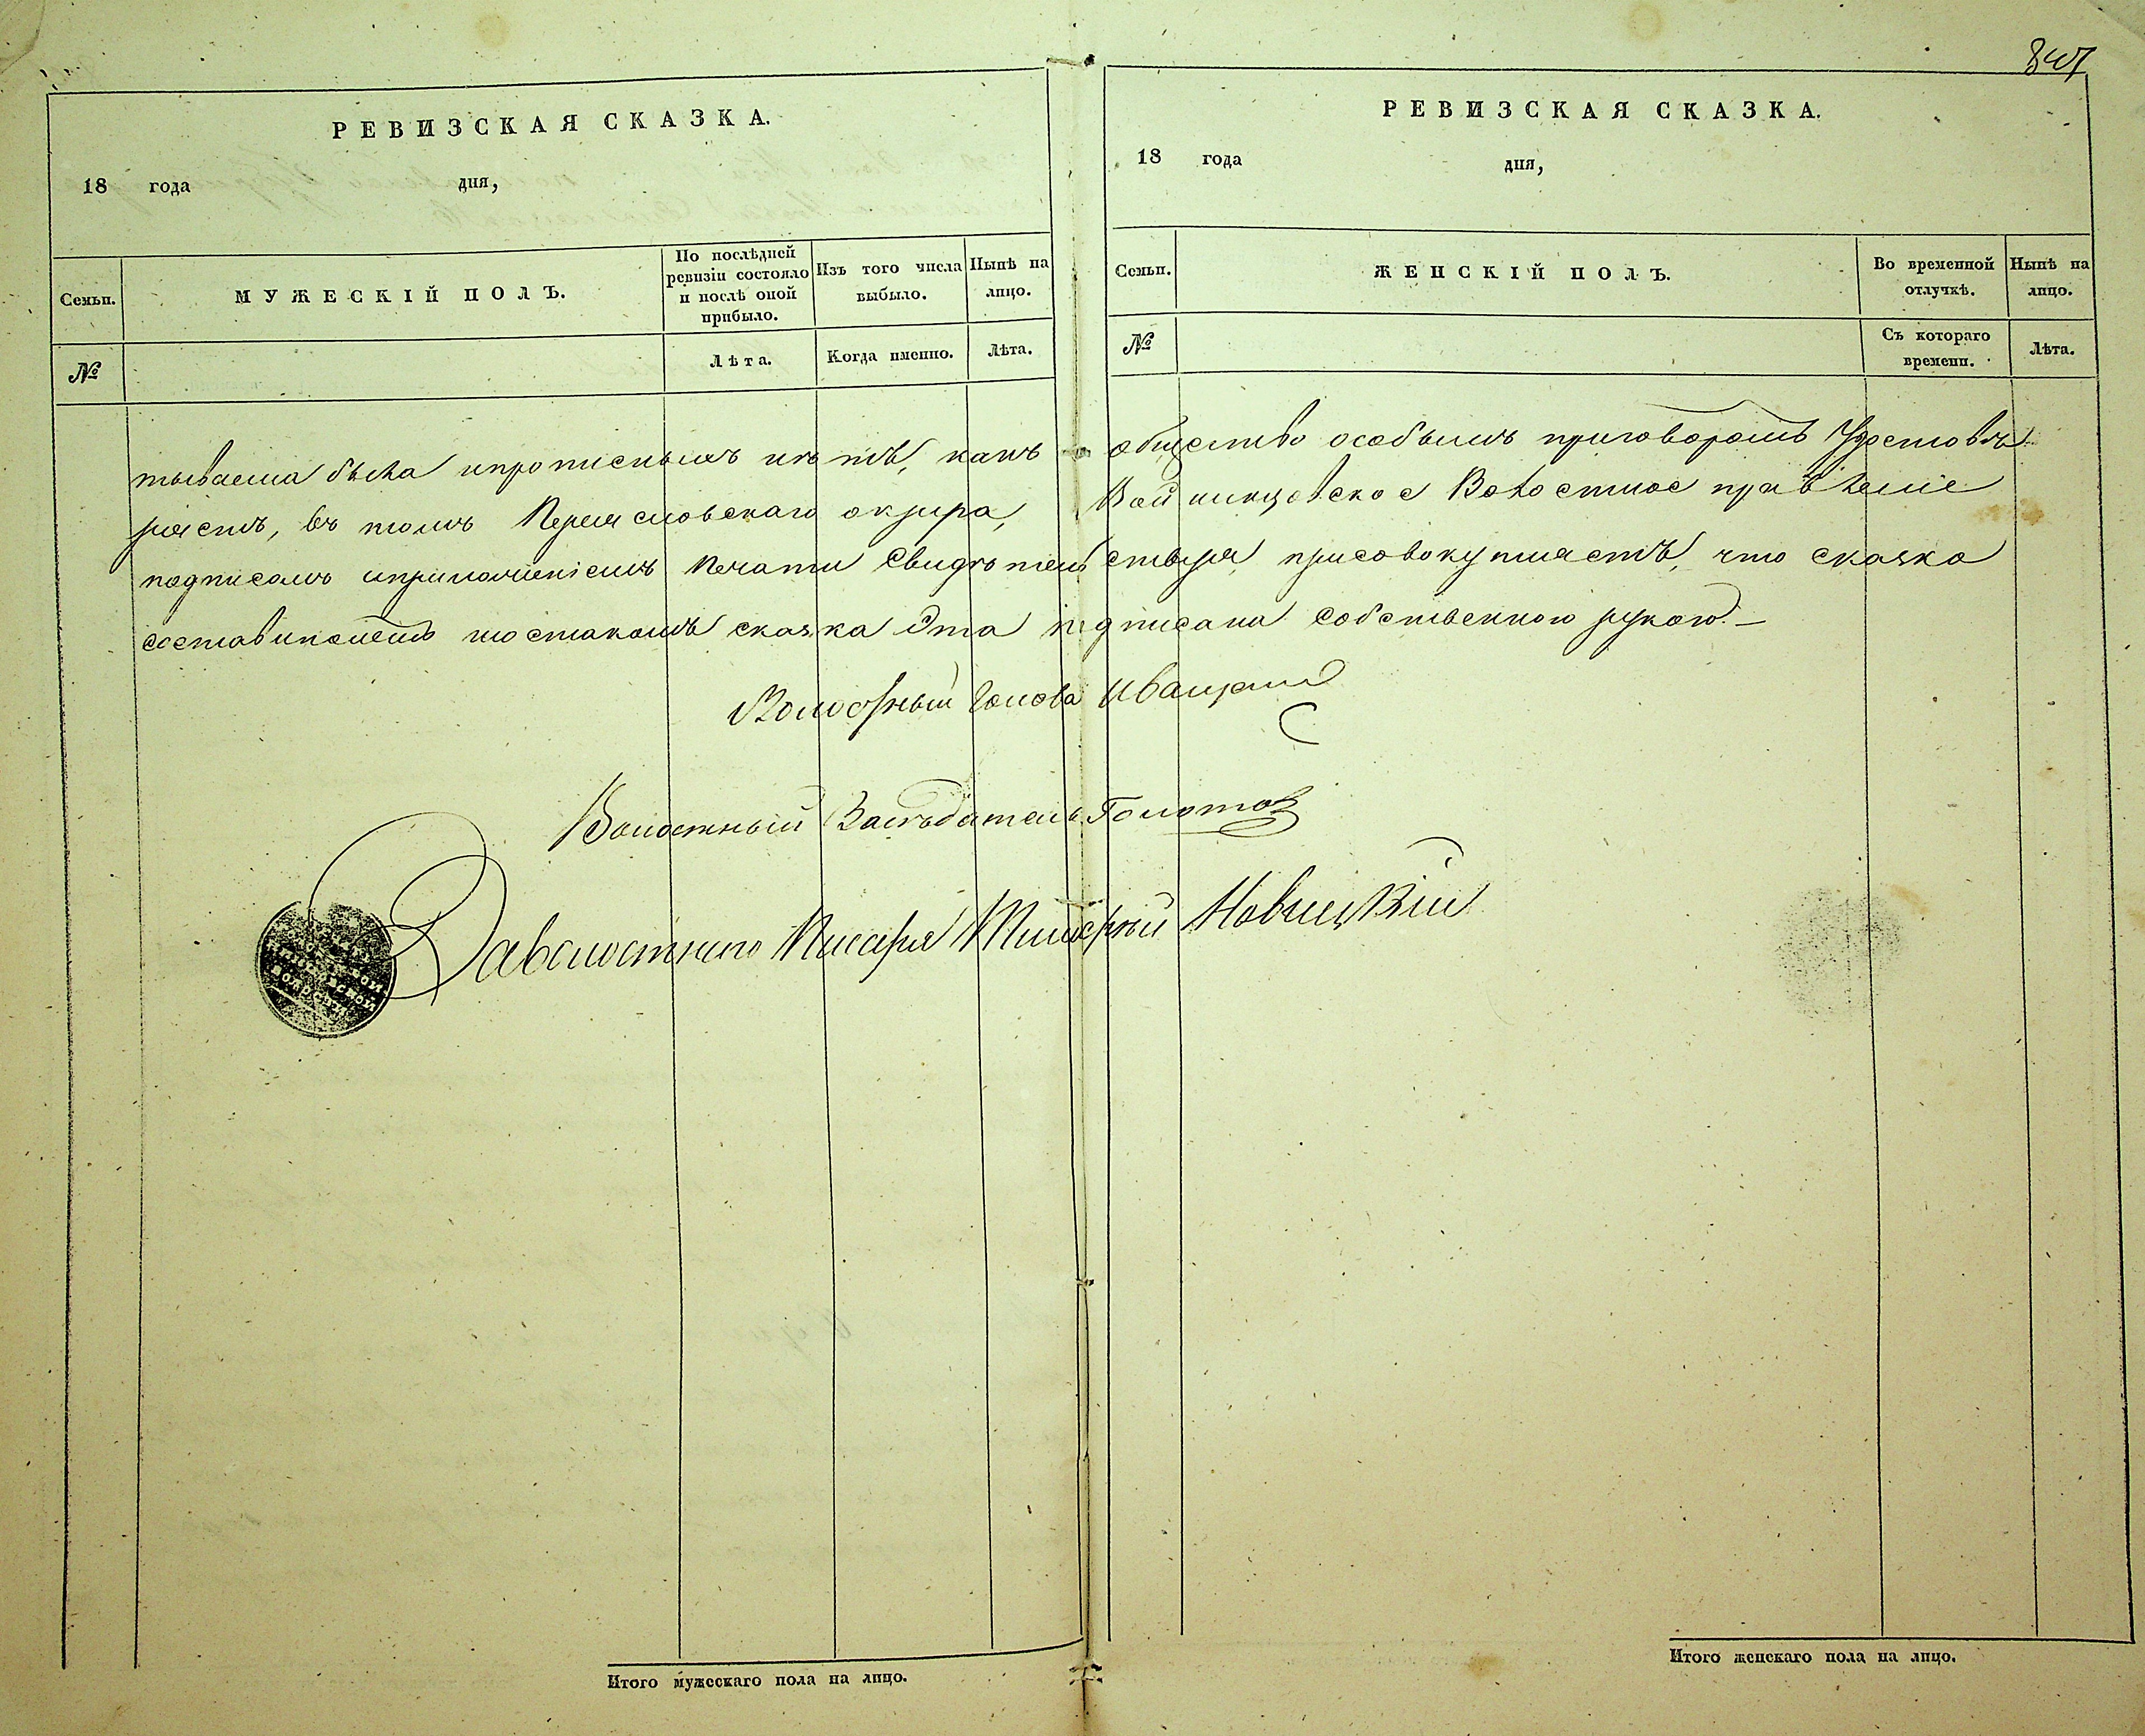 847
РЕВИЗСКАЯ СКАЗКА.
18 года дня,
Семьи.
МУЖЕСКІЙ ПОЛЪ.
По послѣдней ревизіи состояло и послѣ оной прибыло.
Изъ того числа выбыло.
Нынѣ на лицо.
№
Лѣта.
Когда именно.
Лѣта.
РЕВИЗСКАЯ СКАЗКА.
18 года дня,
Семьи.
ЖЕНСКІЙ ПОЛЪ.
Во временной отлучкѣ.
Нынѣ на лицо.
№
Съ котораго времени.
Лѣта.
тываема была и прописныхъ нѣтъ, какъ общество особымъ приговоромъ Удостовѣ
ряетъ, въ томъ Переясловскаго округа, Войницовское Волостное правленіе
подписомъ и приложеніемъ Печати Свидѣтельствуя, присовокупляетъ, что сказка
составителемъ сказка Эта подписана собственною рукою. —
Волостный Голова
Волостный Засѣдатель
За волостнаго Писаря Новицкій
Итого мужескаго пола на лицо.
Итого женскаго пола на лицо.